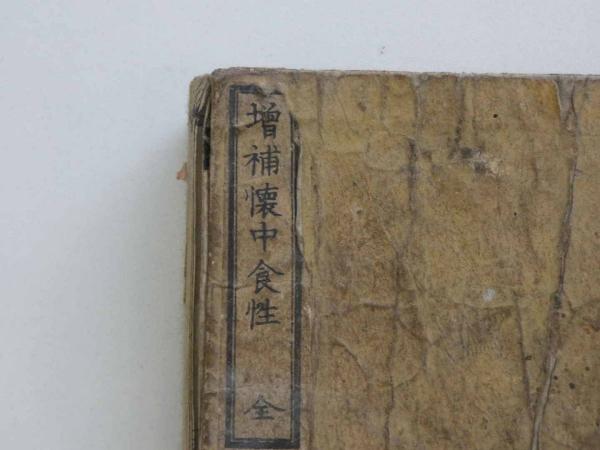 増補懐中食性 全